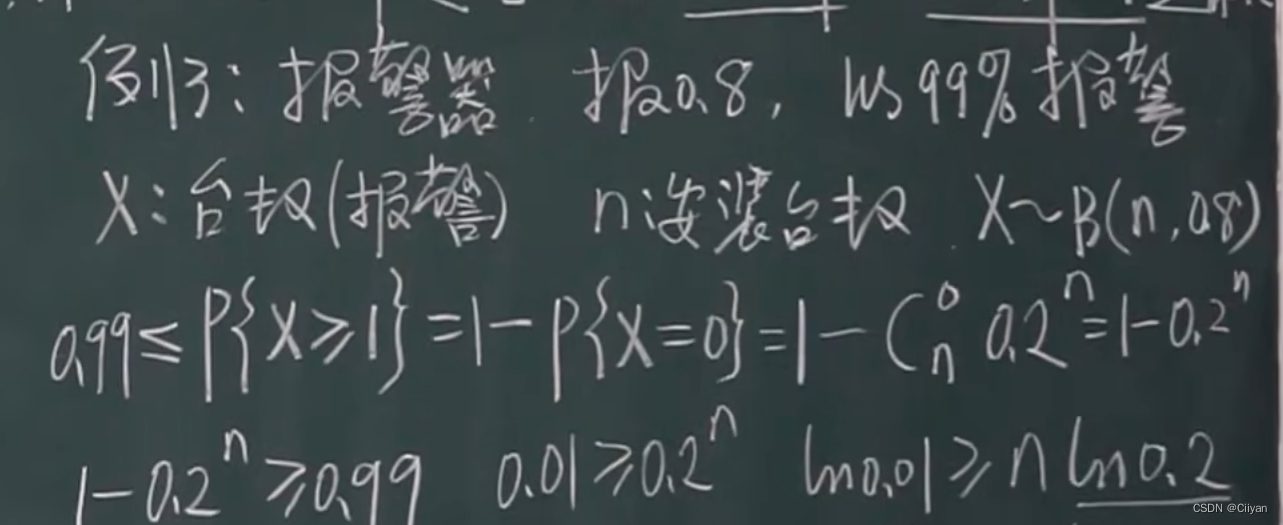 例3: 报警器 报0.8, 以99%报警
X: 台数(报警) n安装台数 X~B(n, 0.8)
0.99≤P{X≥1}=1-P{X=0}=1-C_n^0 0.2^n=1-0.2^n
1-0.2^n≥0.99 0.01≥0.2^n ln0.01≥n ln0.2
CSDN @Ciiyan